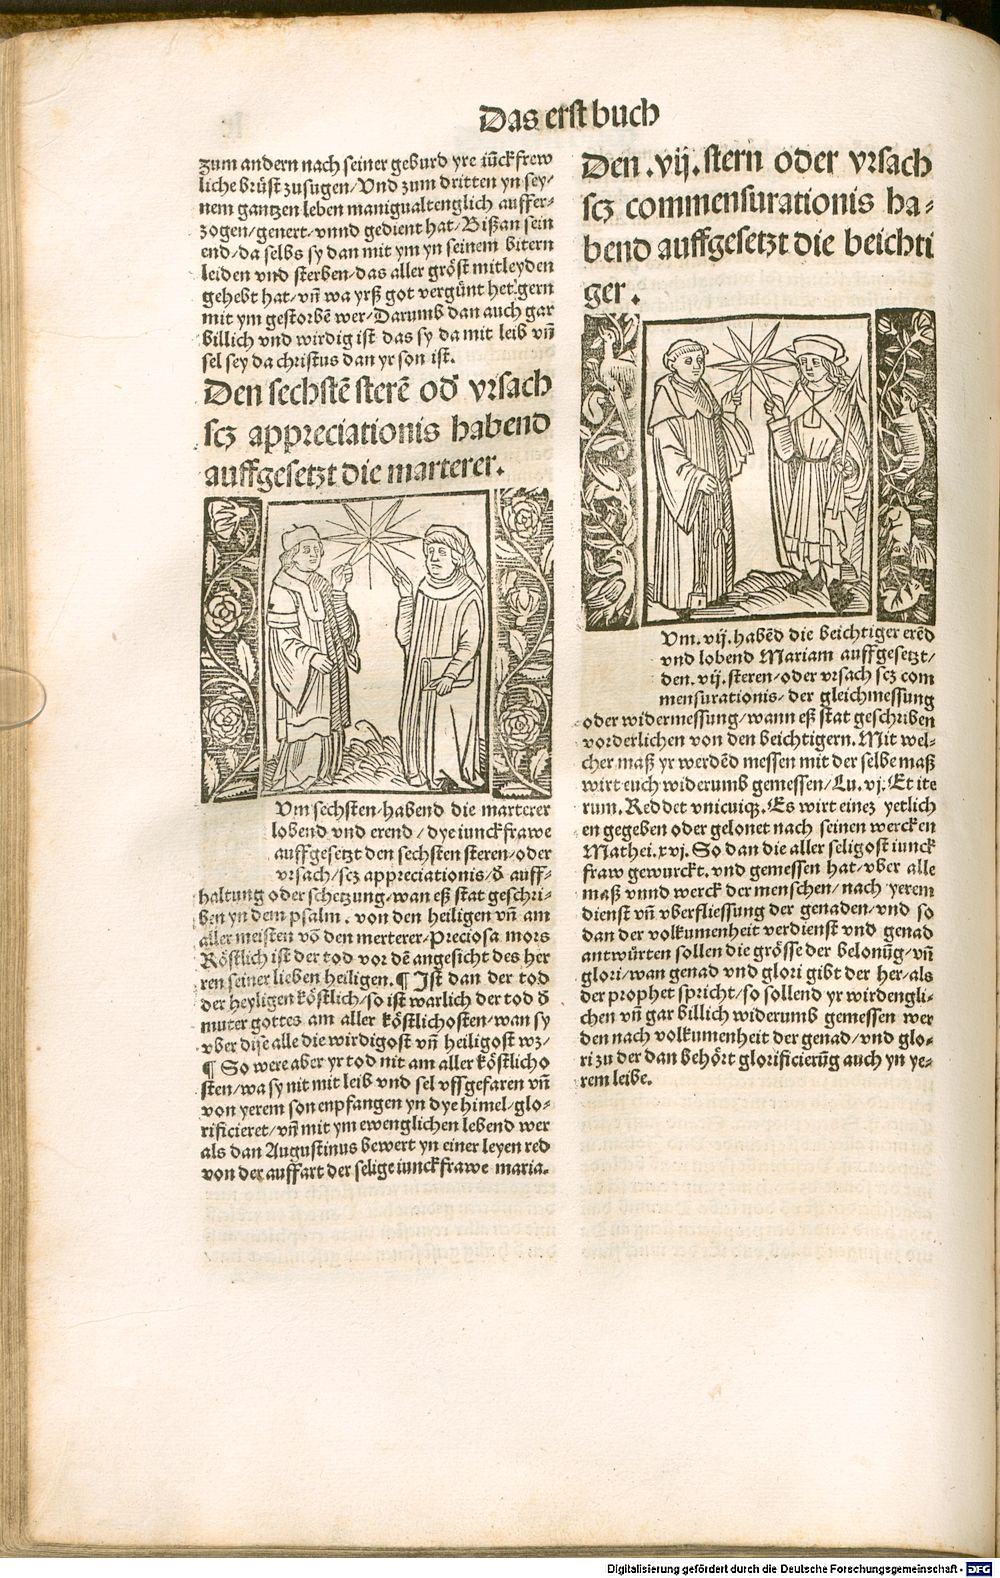 Das erst buch
zum andern nach seiner geburd yre iūckfrew
liche brüst zusugen/Vnd zum dritten yn sey-
nem gantzen leben manigualtenglich auffer-
zogen/genert/vnnd gedient hat/Bißan sein
end/da selbs sy dan mit ym yn seinem bitern
leiden vnd sterben/das aller gröst mitleyden
gehebt hat/vñ wa yrß got vergünt het/gern
mit ym gestorbē wer/Darumb dan auch gar
billich vnd wirdig ist das sy da mit leib vñ
sel sey da christus dan yr son ist.
Den sechstē sterē od̄ vrsach
scz appreciationis habend
auffgesetzt die marterer.
Vm sechsten/habend die marterer
lobend vnd erend/dye iunckfrawe
auffgesetzt den sechsten steren/oder
vrsach/scz appreciationis/d̄ auff-
haltung oder schetzung/wan eß stat geschri-
ben yn dem psalm. von den heiligen vñ am
aller meisten vō den merterer/Preciosa mors
Köstlich ist der tod vor dē angesicht des her
ren seiner lieben heiligen.¶ Ist dan der tod
der heyligen köstlich/so ist warlich der tod d̄
muter gottes am aller köstlichosten/wan sy
vber dise alle die wirdigost vñ heiligost wz/
¶ So were aber yr tod nit am aller köstlicho
sten/wa sy nit mit leib vnd sel vffgefaren vñ
von yerem son enpfangen yn dye himel/glo-
rificieret/vñ mit ym ewenglichen lebend wer
als dan Augustinus bewert yn einer leyen red
von der auffart der selige iunckfrawe maria.
Den .vij. stern oder vrsach
scz commensurationis ha-
bend auffgesetzt die beichti
ger.
Vm. vij. habēd die beichtiger erēd
vnd lobend Mariam auffgesetzt/
den. vij. steren/oder vrsach scz com
mensurationis/der gleichmessung
oder widermessung/wann eß stat geschriben
vorderlichen von den beichtigern. Mit wel-
cher maß yr werdēd messen mit der selbe maß
wirt euch widerumb gemessen/Lu. vj. Et ite
rum. Reddet vnicuiqz. Es wirt einez yetlich
en gegeben oder gelonet nach seinen wercken
Mathei. xvj. So dan die aller seligost iunck
fraw gewurckt. vnd gemessen hat/vber alle
maß vnnd werck der menschen/nach yerem
dienst vñ vberfliessung der genaden/vnd so
dan der volkumenheit verdienst vnd genad
antwürten sollen die grösse der belonūg/vñ
glori/wan genad vnd glori gibt der her/als
der prophet spricht/so sollend yr wirdengli-
chen vñ gar billich widerumb gemessen wer
den nach volkumenheit der genad/vnd glo-
ri zu der dan behört glorificierūg auch yn ye-
rem leibe.
Digitalisierung gefördert durch die Deutsche Forschungsgemeinschaft - DFG